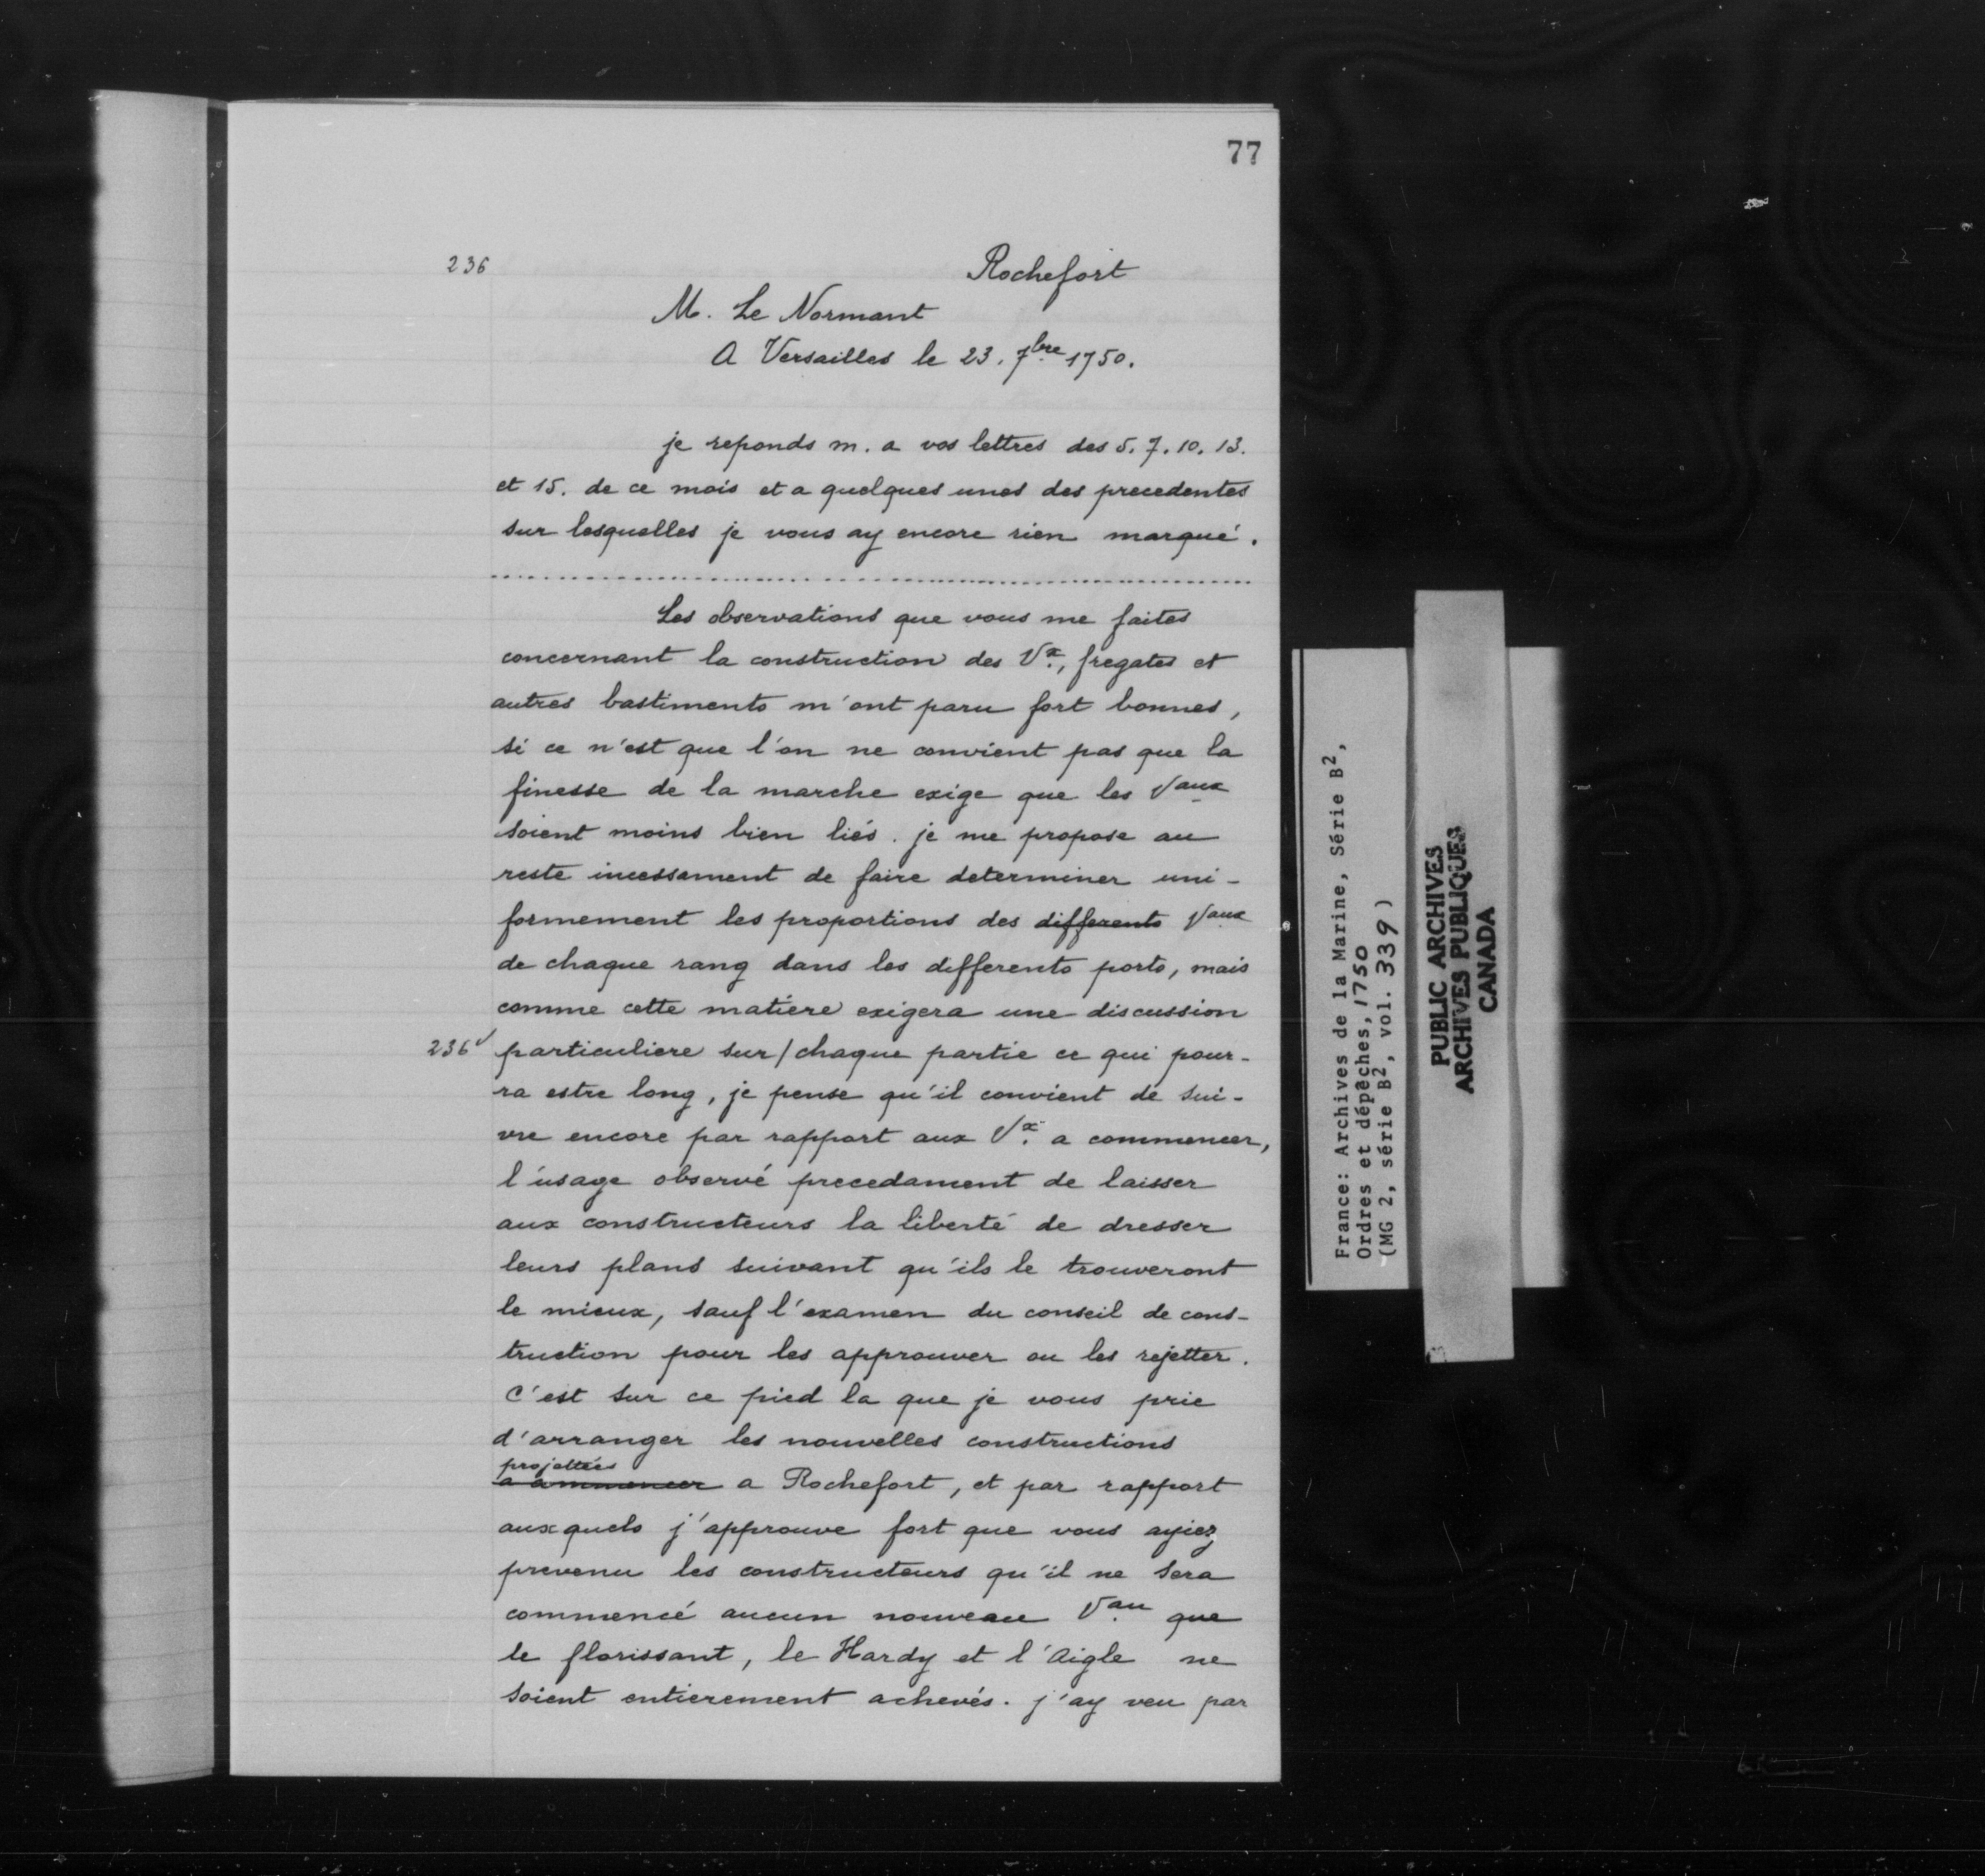 77
236
Rochefort
M. Le Normant
A Versailles le 23. 7bre 1750.
je reponds m. a vos lettres des 5. 7. 10. 13.
et 15. de ce mois et a quelques unes des precedentes
sur lesquelles je vous ay encore rien marqué.
Les observations que vous me faites
concernant la construction des Vx., fregates et
autres bastiments m'ont paru fort bonnes,
si ce n'est que l'on ne convient pas que la
finesse de la marche exige que les Vaux
soient moins bien liés. je me propose au
reste incessament de faire determiner uni-
formement les proportions des differents Vaux
de chaque rang dans les differents ports, mais
comme cette matiere exigera une discussion
236v particuliere sur / chaque partie ce qui pour-
ra estre long, je pense qu'il convient de sui-
vre encore par rapport aux Vx. a commencer,
l'usage observé precedament de laisser
aux constructeurs la liberté de dresser
leurs plans suivant qu'ils le trouveront
le mieux, sauf l'examen du conseil de cons-
truction pour les approuver ou les rejetter.
C'est sur ce pied la que je vous prie
d'arranger les nouvelles constructions
projettées
a commencer a Rochefort, et par rapport
auxquels j'approuve fort que vous ayiez
prevenu les constructeurs qu'il ne sera
commencé aucun nouveau Vau que
le florissant, le Hardy et l'Aigle ne
soient entierement achevés. j'ay veu par
France: Archives de la Marine, Série B2,
Ordres et dépêches, 1750
(MG 2, série B2, vol. 339)
PUBLIC ARCHIVES
ARCHIVES PUBLIQUES
CANADA